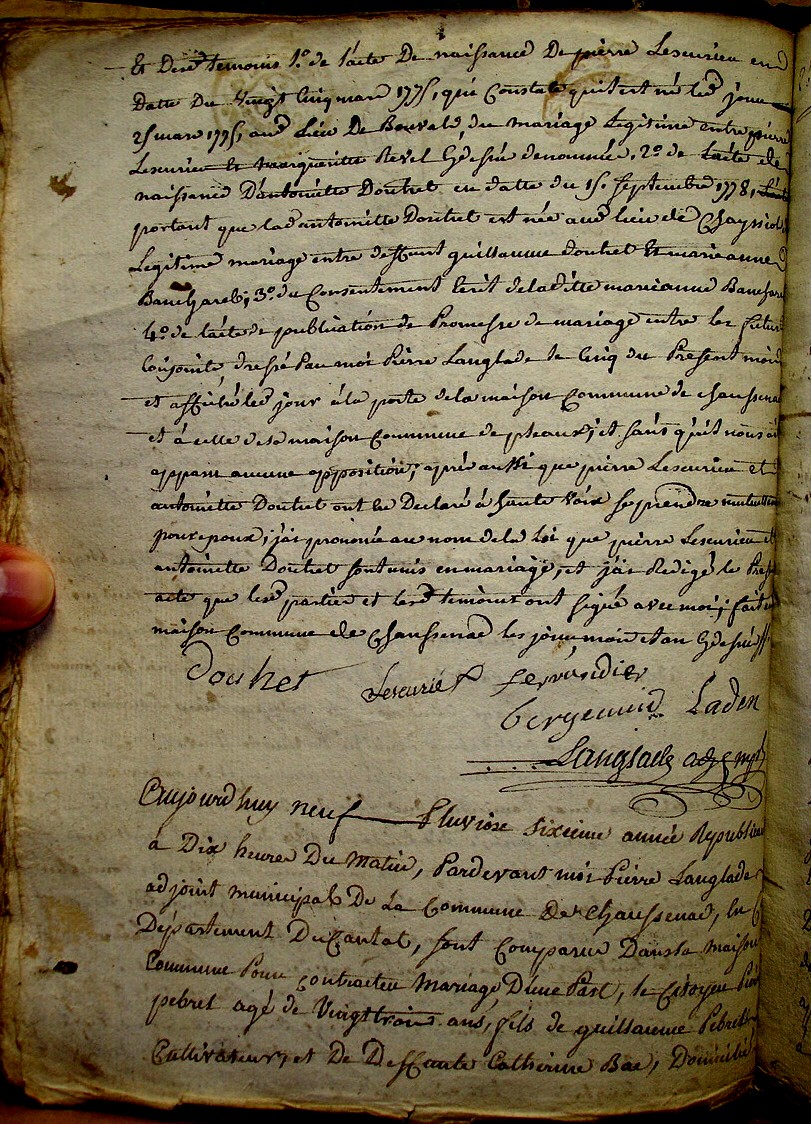 Et Desd temoins 1o. de l'acte De naissance De pierre Lescurieu en
Datte Du Vingt Cinq mars 1775, qui Constate qu'il est né lesd jour
25 mars 1775, aud Lieu De Bouval, du mariage Legitime entre pierre
Lescurieu Et Marguerite Revel Cy dessus denommée, 2o. de l'acte de
naissance D'antoinette Douhet en datte du 15. Septembre 1778,
portant que lad antoinette Douhet est née aud lieu de
Legitime mariage entre deffunt guillaume douhet Et marie anne
3o. du Consentement Ecrit de laditte marieanne
4o. de l'acte de publication de Promesse de mariage entre les futurs
Conjoints dressé Par moi Pierre Langlade le Cinq du Present mois
et affiché lesd jour à la porte de la maison Commune de chaussenac
et à celle de la maison Commune de pleaux, et sans qu'il nous ait
apparu aucune opposition, après aussi que pierre Lescurieu et
antoinette Douhet ont eu Declaré à haute Voix se prendre mutuellement
pour epoux, j'ai prononcé au nom de la Loi que pierre Lescurieu et
antoinette Douhet sont unis en mariage, et j'ai Redigé le
acte que lesd parties et lesd temoins ont signé avec moi; fait en
maison Commune de Chaussenac les jour mois et an Cy dessus
Douhet Lescurie
Laden
Langlade adj
Aujourdhuy neuf Pluviose sixieme année Republicaine
a Dix heures Du Matin, Pardevant moi Pierre Langlade
adjoint municipal De La Commune De Chaussenac,
Departement Du Cantal, sont Comparus Dans la maison
Commune Pour contracter Mariage D'une Part, le Citoyen
pebrel agé de Vingt trois ans, fils de guillaume Pebrel
Cultivateur, et De Deffunte Catherine Bac, Domicilié